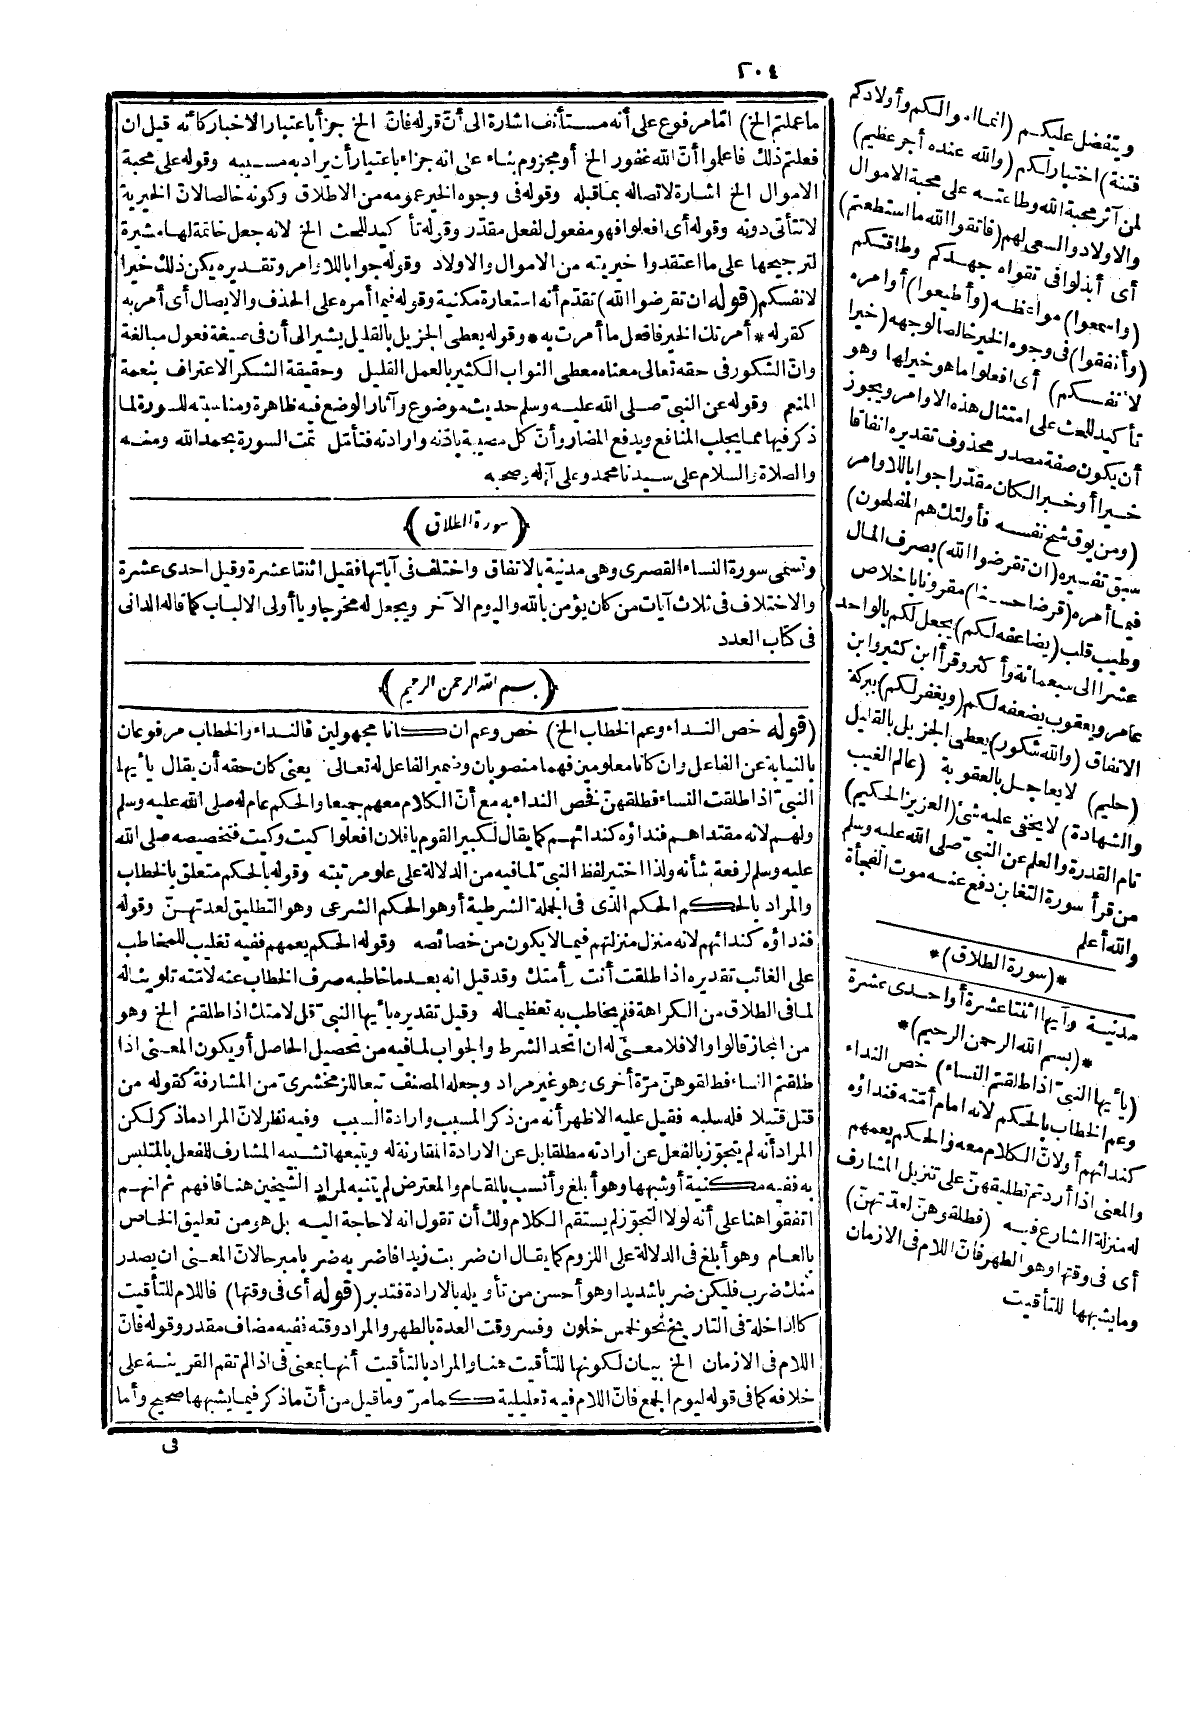 ٢٠٤
ما عملتم الخ) امّا مرفوع على أنه مستأنف اشارة الى أنّ قوله فانّ الخ جزأ باعتبار الاخبار كأنه قيل ان
فعلتم ذلك فاعلموا أنّ الله غفور الخ أو مجزوم بناء على انه جزاء باعتبار أن يراد به مسببه وقوله على محبة
الاموال الخ اشارة لاتصاله بماقبله وقوله فى وجوه الخير عمومه من الاطلاق وكونه خالصا لانّ الخيرية
لا تتأتى دونه وقوله أى افعلوا فهو مفعول لفعل مقدّر وقوله تأكيد للحث الخ لانه جعل خاتمة لها مشيرة
لترجيحها على ما اعتقدوا خيريته من الاموال والاولاد وقوله جوابا للاوامر وتقديره يكن ذلك خيرا
لانفسكم (قوله ان تقرضوا الله) تقدّم أنه استعارة مكنية وقوله فيما أمره على الحذف والايصال أى أمر به
كقوله * أمرتك الخير فافعل ما أمرت به * وقوله يعطى الجزيل بالقليل يشير الى أن فى صيغة فعول مبالغة
وانّ الشكور فى حقه تعالى معناه معطى الثواب الكثير بالعمل القليل وحقيقة الشكر الاعتراف بنعمة
المنعم وقوله عن النبىّ صلى الله عليه وسلم حديث موضوع وآثار الوضع فيه ظاهرة ومناسبته للسورة لما
ذكر فيها مما يجلب المنافع ويدفع المضار وأنّ كل مصيبة باذنه وارادته فتأمّل تمت السورة بحمد الله ومنه
والصلاة والسلام على سيدنا محمد وعلى آله وصحبه
﴿سورة الطلاق﴾
وتسمى سورة النساء القصرى وهى مدنية بالاتفاق واختلف فى آياتها فقيل اثنتا عشرة وقيل احدى عشرة
والاختلاف فى ثلاث آيات من كان يؤمن بالله واليوم الآخر ويجعل له مخرجا ويا أولى الالباب كما قاله الدانى
فى كتاب العدد
﴿بسم الله الرحمن الرحيم﴾
(قوله خص النداء وعم الخطاب الخ) خص وعم ان كانا مجهولين فالنداء والخطاب مرفوعان
بالنيابة عن الفاعل وان كانا معلومين فهما منصوبان وضمير الفاعل له تعالى يعنى كان حقه أن يقال يأيها
النبىّ اذا طلقت النساء فطلقهنّ فخص النداء به مع أنّ الكلام معهم جميعا والحكم عام له صلى الله عليه وسلم
ولهم لانه مقتداهم فنداؤه كندائهم كما يقال لكبير القوم يا فلان افعلوا كيت وكيت فتخصيصه صلى الله
عليه وسلم لرفعة شأنه ولذا اختير لفظ النبىّ لما فيه من الدلالة على علو مرتبته وقوله بالحكم متعلق بالخطاب
والمراد بالحكم الحكم الذى فى الجملة الشرطية أو هو الحكم الشرعى وهو التطليق لعدتهنّ وقوله
فنداؤه كندائهم لانه منزل منزلتهم فيما لا يكون من خصائصه وقوله الحكم يعمهم ففيه تغليب للمخاطب
على الغائب تقديره اذا طلقت أنت وأمتك وقد قيل انه بعد ما خاطبه صرف الخطاب عنه لامّته تلوينا له
لما فى الطلاق من الكراهة فلم يخاطب به تعظيما له وقيل تقديره يأيها النبىّ قل لامتك اذا طلقتم الخ وهو
من المجاز قالوا والا فلا معنى له ان اتحد الشرط والجواب لما فيه من تحصيل الحاصل أو يكون المعنى اذا
طلقتم النساء فطلقوهنّ مرّة أخرى وهو غير مراد وجعله المصنف تبعا للزمخشرىّ من المشارفة كقوله من
قتل قتيلا فله سلبه فقيل عليه الاظهر أنه من ذكر المسبب وارادة السبب وفيه نظر لانّ المراد ماذكر لكن
المراد أنه لم يتجوّز بالفعل عن ارادته مطلقا بل عن الارادة المقارنة له ويتبعها تشبيه المشارف للفعل بالمتلبس
به ففيه مكنية أو شبهها وهو أبلغ وأنسب بالمقام والمعترض لم يتنبه لمراد الشيخين هنا فافهم ثم انهم
اتفقوا هنا على أنه لولا التجوّز لم يستقم الكلام ولك أن تقول انه لا حاجة اليه بل هو من تعليق الخاص
بالعام وهو أبلغ فى الدلالة على اللزوم كما يقال ان ضربت زيدا فاضربه ضربا مبرحا لانّ المعنى ان يصدر
منك ضرب فليكن ضربا شديدا وهو أحسن من تأويله بالارادة فتدبر (قوله أى فى وقتها) فاللام للتأقيت
كالداخلة فى التاريخ نحو لخمس خلون وفسر وقت العدة بالطهر والمراد وقته ففيه مضاف مقدر وقوله فانّ
اللام فى الازمان الخ بيان لكونها للتأقيت هنا والمراد بالتأقيت أنها بمعنى فى اذا لم تقم القرينة على
خلافه كما فى قوله ليوم الجمع فانّ اللام فيه تعليلية كما مرّ وما قيل من أنّ ما ذكر فيما يشبهها صحيح وأما
فى
ويتفضل عليكم (انما أموالكم وأولادكم
فتنة) اختبار لكم (والله عنده أجر عظيم)
لمن آثر محبة الله وطاعته على محبة الاموال
والاولاد والسعى لهم (فاتقوا الله ما استطعتم)
أى أبذلوا فى تقواه جهدكم وطاقتكم
(واسمعوا) مواعظه (وأطيعوا) أوامره
(وأنفقوا) فى وجوه الخير خالصا لوجهه (خيرا
لانفسكم) أى افعلوا ما هو خير لها وهو
تأكيد للحث على امتثال هذه الاوامر ويجوز
أن يكون صفة مصدر محذوف تقديره انفاقا
خيرا أو خبر الكان مقدّرا جوابا للاوامر
(ومن يوق شح نفسه فأولئك هم المفلحون)
سبق تفسيره (ان تقرضوا الله) بصرف المال
فيما أمره (قرضا حسنا) مقرونا باخلاص
وطيب قلب (يضاعفه لكم) يجعل لكم بالواحد
عشرا الى سبعمائة وأكثر وقرأ ابن كثير وابن
عامر ويعقوب يضعفه لكم (ويغفر لكم) ببركة
الانفاق (والله شكور) يعطى الجزيل بالقليل
(حليم) لا يعاجل بالعقوبة (عالم الغيب
والشهادة) لا يخفى عليه شئ (العزيز الحكيم)
تام القدرة والعلم عن النبىّ صلى الله عليه وسلم
من قرأ سورة التغابن دفع عنه موت الفجأة
والله أعلم
*(سورة الطلاق)*
مدنية وآيها اثنتا عشرة أو احدى عشرة
*(بسم الله الرحمن الرحيم)*
(يأيها النبىّ اذا طلقتم النساء) خص النداء
وعم الخطاب بالحكم لانه امام أمّته فنداؤه
كندائهم أو لانّ الكلام معه والحكم يعمهم
والمعنى اذا أردتم تطليقهنّ على تنزيل المشارف
له منزلة الشارع فيه (فطلقوهنّ لعدتهنّ)
أى فى وقتها وهو الطهر فانّ اللام فى الازمان
وما يشبهها للتأقيت